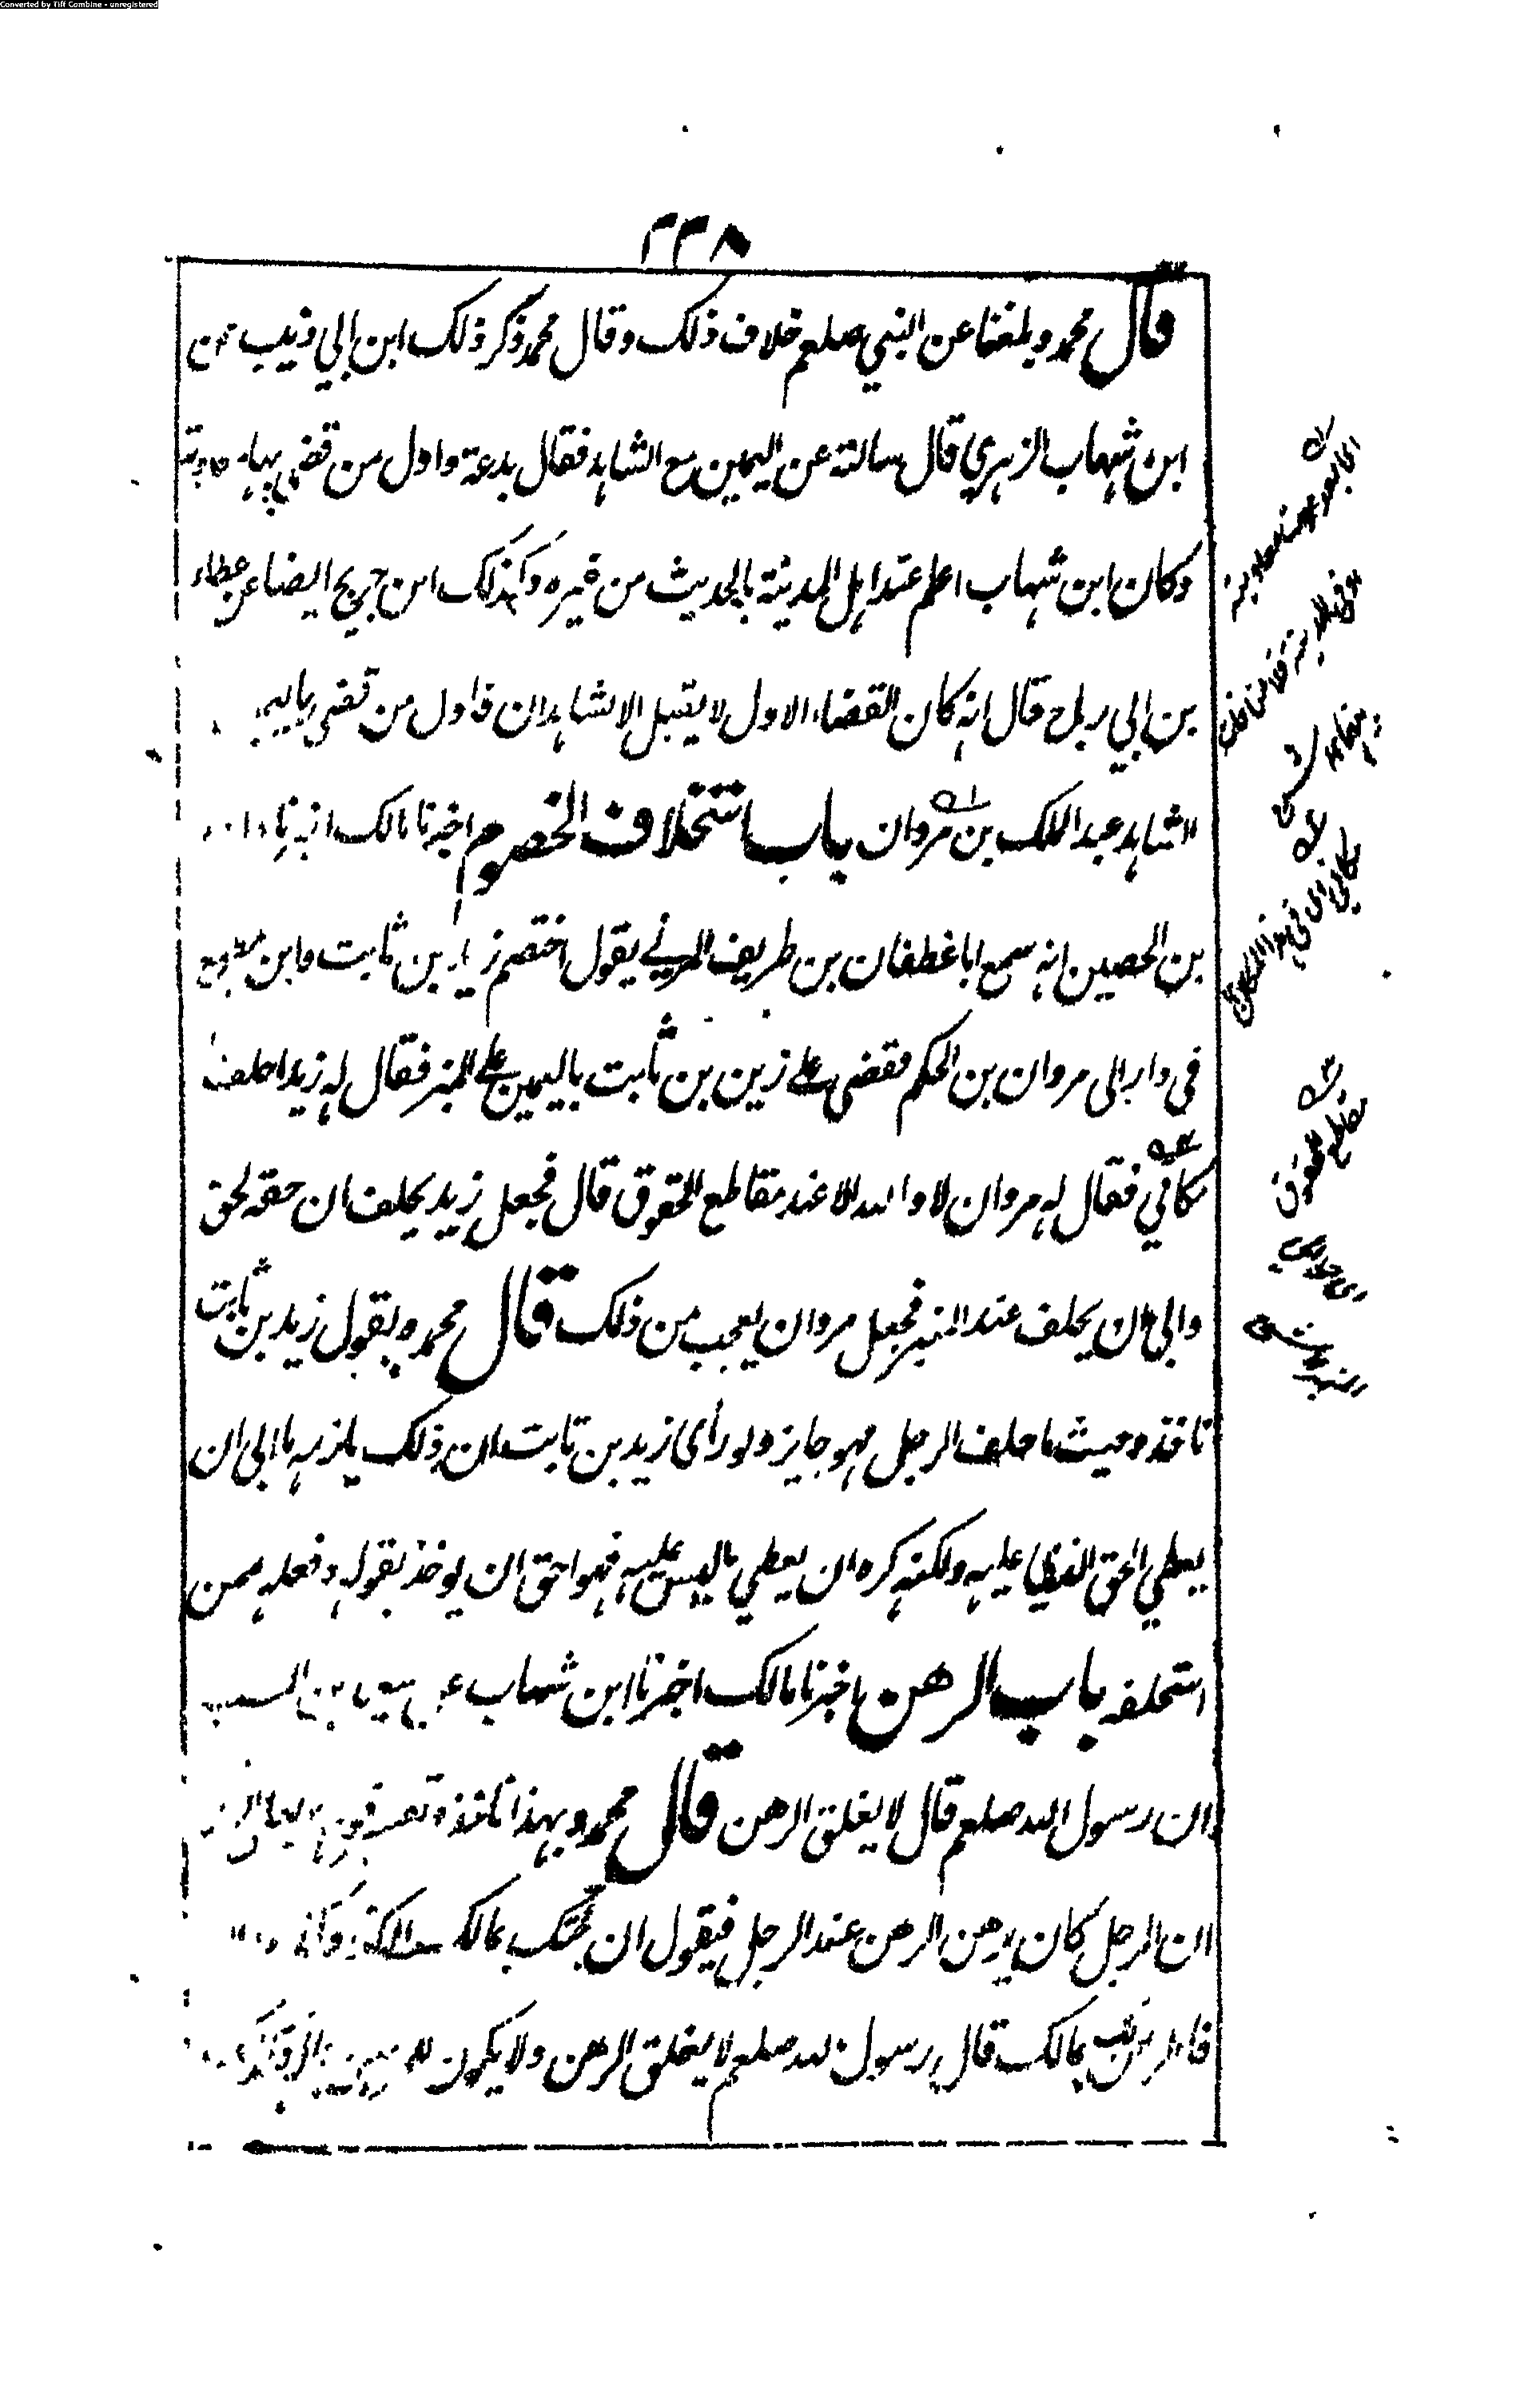 Converted by Tiff Combine - unregistered
٢٣٨
قال محمد وبلغنا عن النبي صلعم خلاف ذلك وقال محمد ذكر ذلك ابن ابي ذيب عن
ابن شهاب الزهري قال سالته عن اليمين مع الشاهد فقال بدعة واول من قضى بها معاوية
وكان ابن شهاب اعلم عند اهل المدينة بالحديث من غيره وكذلك ابن جريج ايضا عن عطاء
بن ابي رباح قال انه كان القضاء الاول لا يقبل الا شاهدان فاول من قضى باليمين
الشاهد عبد الملك بن مروان باب استحلاف الخصوم اخبرنا مالك اخبرنا داود
بن الحصين انه سمع ابا غطفان بن طريف المري يقول اختصم زيد بن ثابت وابن مطيع
في دار الى مروان بن الحكم فقضى على زين بن ثابت باليمين على المنبر فقال له زيد احلف
مكاني فقال له مروان لا والله الا عند مقاطع الحقوق قال فجعل زيد يحلف ان حقه لحق
وابى ان يحلف عند المنبر فجعل مروان يعجب من ذلك قال محمد وبقول زيد بن ثابت
ناخذ وحيث ما حلف الرجل فهو جايز ولو رأى زيد بن ثابت ان ذلك يلزمه ما ابى ان
يعطي الحق الذي عليه ولكنه كره ان يعطي ما ليس عليه فهو احق ان يوخذ بقوله وفعله ممن
استحلفه باب الرهن اخبرنا مالك اخبرنا ابن شهاب عن سعيد بن المسيب
ان رسول الله صلعم قال لا يغلق الرهن قال محمد وبهذا ناخذ وتفسير قوله
ان الرجل كان يرهن الرهن عند الرجل فيقول ان جئتك بمالك
فالرهن بمالك قال رسول الله صلعم لا يغلق الرهن ولا يكون
مقاطع الحقوق